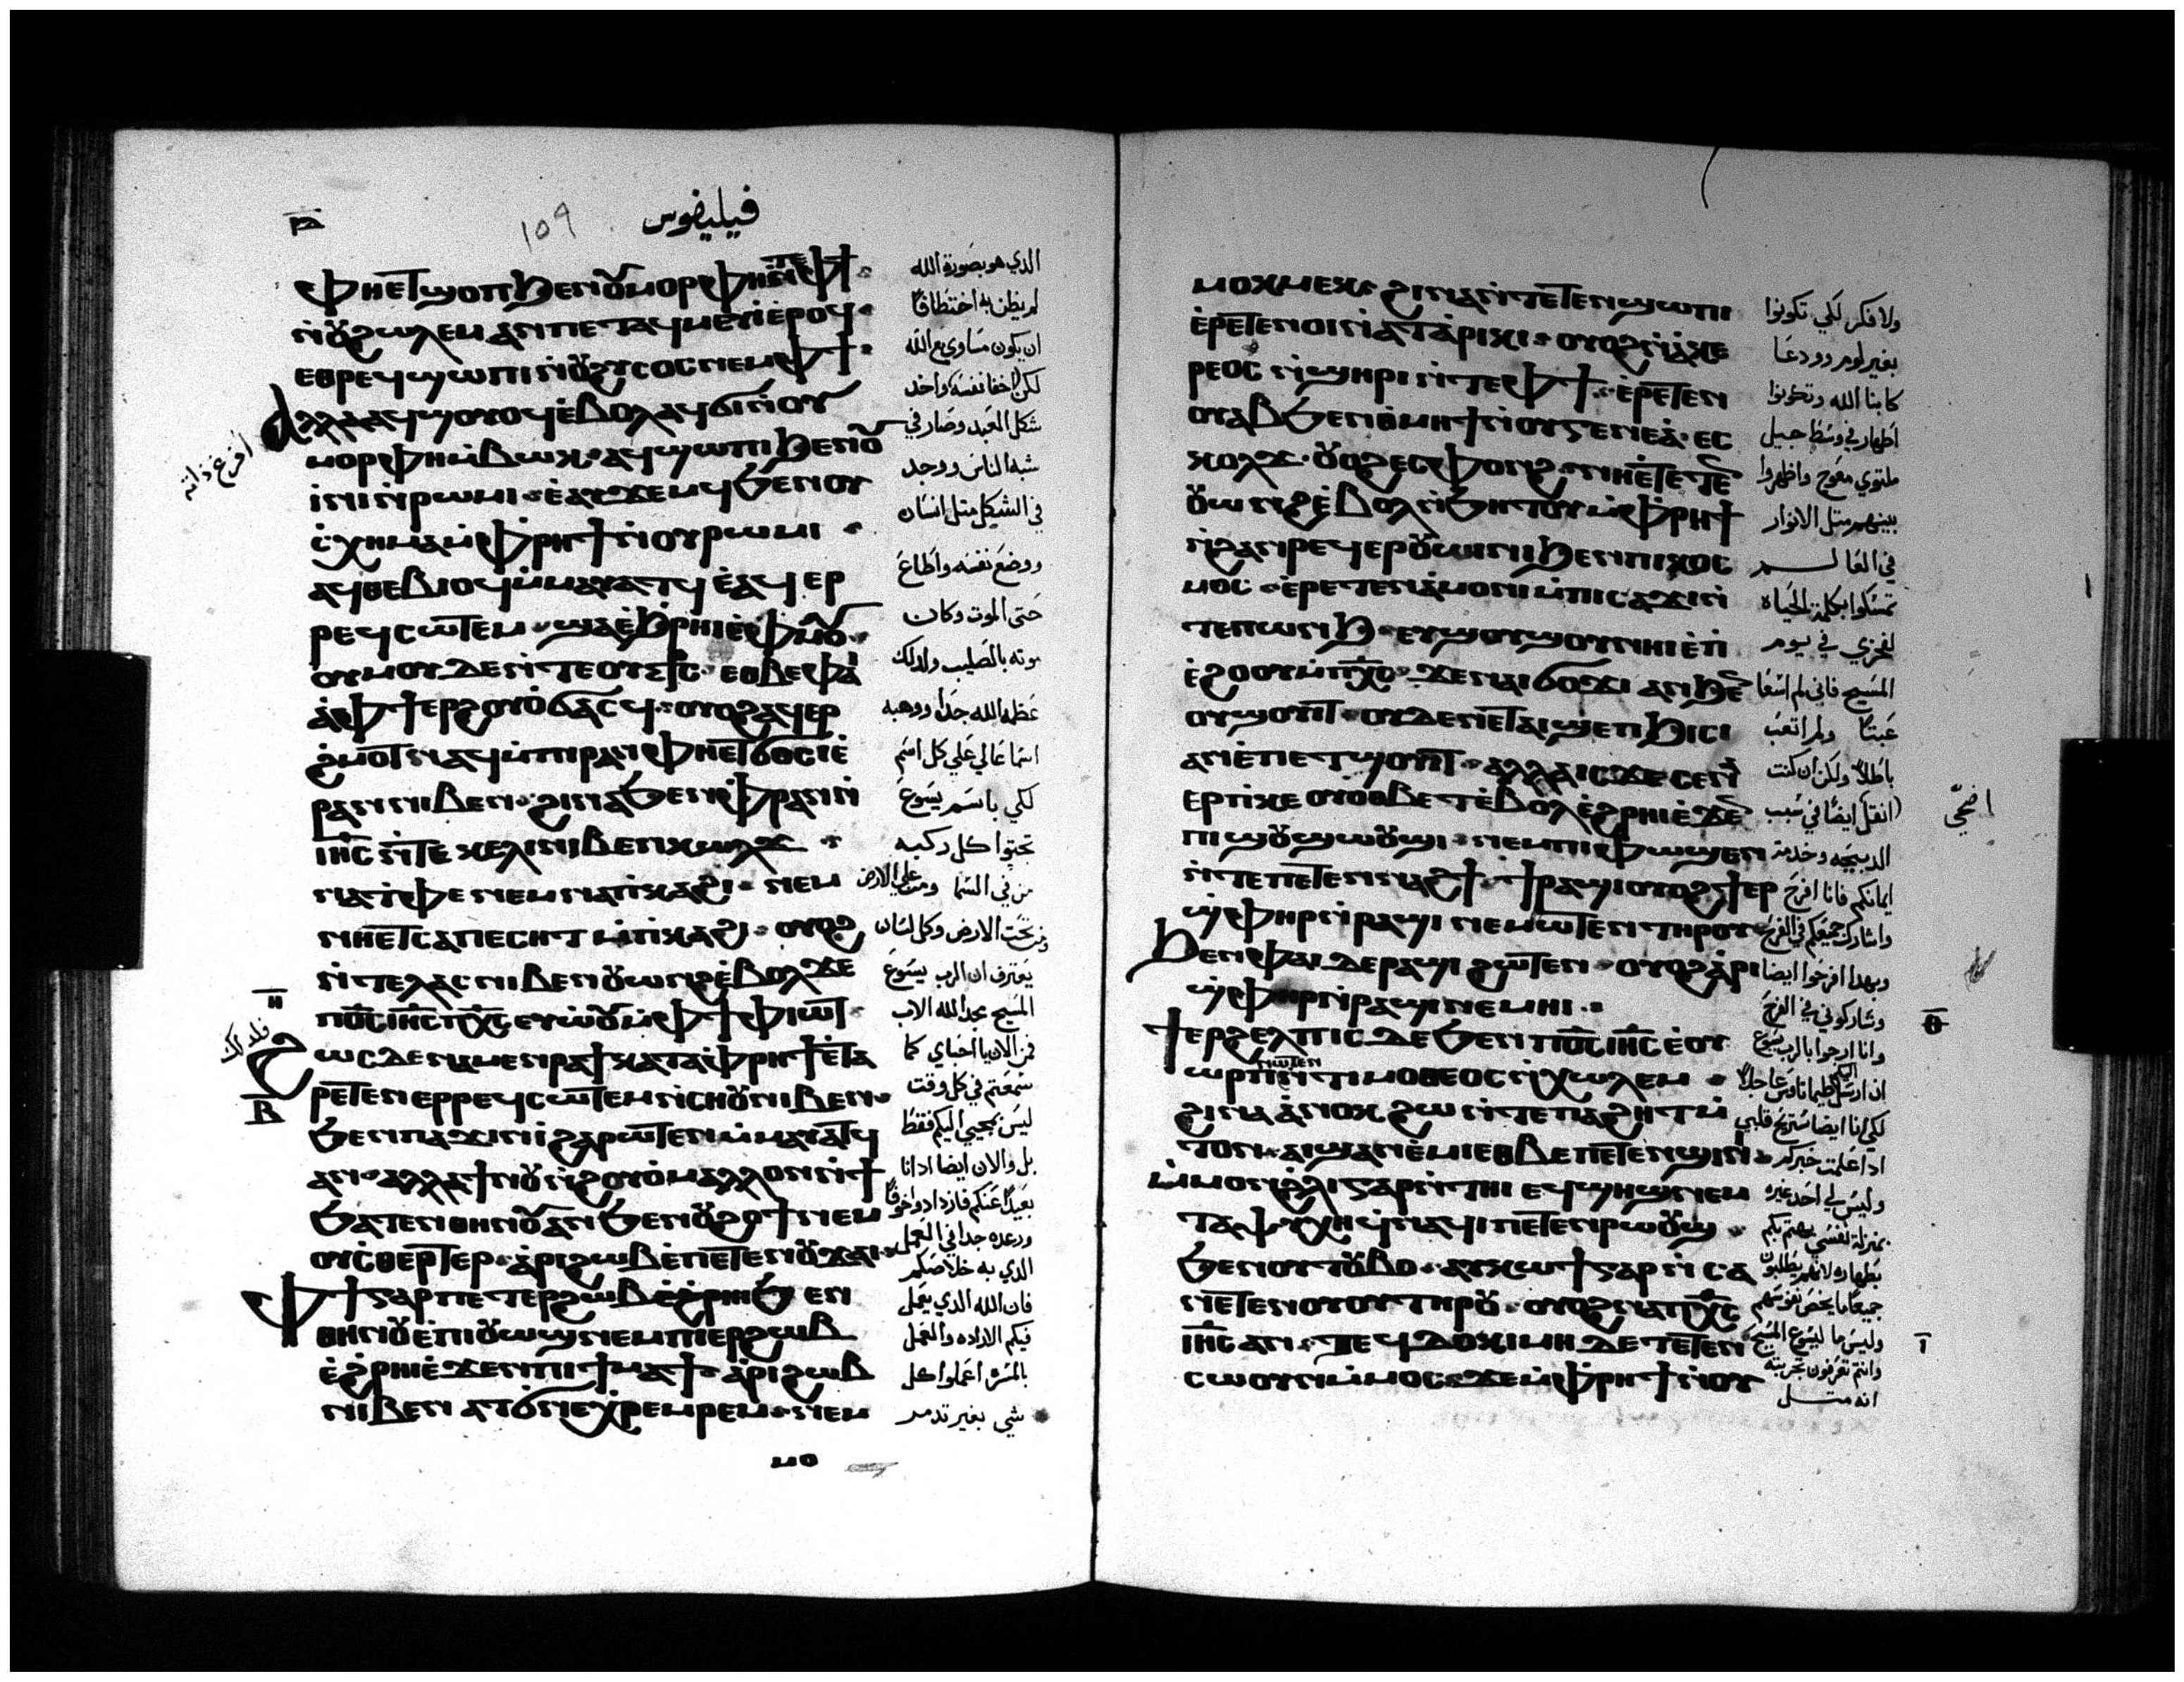 فيليفوس
ⲫⲏⲉⲧϣⲟⲡ ϧⲉⲛⲟⲩⲙⲟⲣⲫⲏ ⲛⲧⲉⲫϯ
ⲛⲟⲩϩⲱⲗⲉⲙ ⲁⲛ ⲡⲉⲧⲁϥⲙⲉⲩⲓ ⲉⲣⲟϥ
ⲉⲑⲣⲉϥϣⲱⲡⲓ ⲛⲟⲩϩⲩⲥⲟⲥ ⲛⲉⲙⲫϯ
ⲁⲗⲗⲁ ⲁϥϣⲟⲩⲟϥ ⲉⲃⲟⲗ ⲁϥϭⲓ ⲛⲟⲩ
ⲙⲟⲣⲫⲏ ⲙⲃⲱⲕ ⲁϥϣⲱⲡⲓ ϧⲉⲛⲟⲩ
ⲓⲛⲓ ⲛⲣⲱⲙⲓ ⲉⲁⲩϫⲉⲙϥ ϧⲉⲛⲟⲩ
ⲥⲭⲏⲙⲁ ⲙⲫⲣⲏϯ ⲛⲟⲩⲣⲱⲙⲓ
ⲁϥⲑⲉⲃⲓⲟϥ ⲙⲙⲁⲩⲁⲧϥ ⲉⲁϥⲉⲣ
ⲣⲉϥⲥⲱⲧⲉⲙ ϣⲁⲉϧⲣⲏⲓ ⲉⲫⲙⲟⲩ
ⲟⲩⲙⲟⲩ ⲇⲉ ⲛⲧⲉ ⲟⲩⲥⳁⲥ ⲉⲑⲃⲉⲫⲁⲓ
ⲁⲫϯ ⲉⲣϩⲟⲩⲟ ϭⲁⲥϥ ⲟⲩⲟϩ ⲁϥⲉⲣ
ϩⲙⲟⲧ ⲛⲁϥ ⲙⲡⲓⲣⲁⲛ ⲫⲏⲉⲧϭⲟⲥⲓ ⲉ
ⲣⲁⲛ ⲛⲓⲃⲉⲛ ϩⲓⲛⲁ ϧⲉⲛ ⲫⲣⲁⲛ ⲛ
ⲓⲏⲥ ⲛⲧⲉ ⲕⲉⲗⲓ ⲛⲓⲃⲉⲛ ⲕⲱⲗϫ
ⲛⲁⲧⲫⲉ ⲛⲉⲙ ⲛⲁⲡⲕⲁϩⲓ ⲛⲉⲙ
ⲛⲏⲉⲧⲥⲁⲡⲉⲥⲏⲧ ⲙⲡⲕⲁϩⲓ ⲟⲩⲟϩ
ⲛⲧⲉⲗⲁⲥ ⲛⲓⲃⲉⲛ ⲟⲩⲱⲛϩ ⲉⲃⲟⲗ ϫⲉ
ⲡⲟⲥ ⲓⲏⲥ ⲡⲭⲥ ⲉⲩⲱⲟⲩ ⲙⲫϯ ⲫⲓⲱⲧ
ϩⲱⲥⲇⲉ ⲛⲁⲙⲉⲛⲣⲁϯ ⲕⲁⲧⲁ ⲫⲣⲏϯ ⲉⲧⲁ
ⲣⲉⲧⲉⲛⲉⲣⲣⲉϥⲥⲱⲧⲉⲙ ⲛⲥⲏⲟⲩ ⲛⲓⲃⲉⲛ
ϧⲉⲛⲡⲁϫⲓⲛⲓ ϩⲁⲣⲱⲧⲉⲛ ⲙⲙⲁⲩⲁⲧϥ
ⲁⲛ ⲁⲗⲗⲁ ϯⲛⲟⲩ ⲛϩⲟⲩⲟ ⲙⲁⲗⲗⲟⲛ ⲛϯ
ϧⲁⲧⲉⲛ ⲑⲏⲛⲟⲩ ⲁⲛ ϧⲉⲛⲟⲩϩⲟϯ ⲛⲉⲙ
ⲟⲩⲥⲑⲉⲣⲧⲉⲣ ⲁⲣⲓϩⲱⲃ ⲉⲡⲉⲧⲉⲛⲟⲩϫⲁⲓ
ⲫϯ ⲅⲁⲣ ⲡⲉⲧⲉⲣϩⲱⲃ ⲉϩⲣⲏⲓ ϧⲉⲛ
ⲑⲏⲛⲟⲩ ⲉⲡⲓⲟⲩⲱϣ ⲛⲉⲙ ⲡⲓⲉⲣϩⲱⲃ
ⲉϩⲣⲏⲓ ⲉϫⲉⲛ ⲡⲓϯⲙⲁϯ ⲁⲣⲓϩⲱⲃ
ⲛⲓⲃⲉⲛ ⲁⲧϭⲛⲉ ⲭⲣⲉⲙⲣⲉⲙ ⲛⲉⲙ
الذي هو بصورة الله
لم يظن به اختطافا
ان يكون مساوي مع الله
لكن اخفا نفسه واخد
شكل العبد وصار في
شبه الناس ووجد
في الشكل متل انسان
ووضع نفسه واطاع
حتى الموت وكان
موته بالصليب ولدلك
عظمه الله جدا ووهبه
اسما عالي علي كل اسم
لكي باسم يسوع
تجتوا كل ركبه
من في السما ومن علي الارض
ومن تحت الارض وكل لسان
يعترف ان الرب يسوع
المسيح مجد الله الاب
فمن الان يا احباي كما
سمعتم في كل وقت
ليس بمجيي اليكم فقط
بل والان ايضا ادانا
بعيدا عنكم فازدادوا خوفا
ورعده جدا في العمل
الذي به خلاصكم
فان الله الذي يعمل
فيكم الاراده والعمل
بالمسره اعملوا كل
شي بغير تدمر
افرغ ذاته
ⲙⲟⲕⲙⲉⲕ ϩⲓⲛⲁ ⲛⲧⲉⲧⲉⲛϣⲱⲡⲓ
ⲉⲣⲉⲧⲉⲛⲟⲓ ⲛⲁⲧⲁⲣⲓⲕⲓ ⲟⲩⲟϩ ⲛⲁⲕⲉ
ⲣⲉⲟⲥ ⲛϣⲏⲣⲓ ⲛⲧⲉⲫϯ ⲉⲣⲉⲧⲉⲛ
ⲟⲩⲁⲃ ϧⲉⲛ ⲑⲙⲏϯ ⲛⲟⲩⲅⲉⲛⲉⲁ ⲉⲥ
ⲕⲟⲗϫ ⲟⲩⲟϩ ⲉⲥⲫⲟⲛϩ ⲛⲏⲉⲧⲉⲧⲉⲛ
ⲟⲩⲱⲛϩ ⲉⲃⲟⲗ ⲛϧⲏⲧⲟⲩ ⲙⲫⲣⲏϯ
ⲛϩⲁⲛⲣⲉϥⲉⲣⲟⲩⲱⲓⲛⲓ ϧⲉⲛ ⲡⲓⲕⲟⲥ
ⲙⲟⲥ ⲉⲣⲉⲧⲉⲛⲁⲙⲟⲛⲓ ⲙⲡⲓⲥⲁϫⲓ ⲛ
ⲧⲉⲡⲱⲛϧ ⲉⲩϣⲟⲩϣⲟⲩ ⲛⲏⲓ ⲉⲡⲓ
ⲉϩⲟⲟⲩ ⲙⲡⲭⲥ ϫⲉ ⲛⲁⲓϭⲟϫⲓ ⲁⲛ ϧⲉⲛ
ⲟⲩϣⲟⲩⲓⲧ ⲟⲩⲇⲉ ⲛⲉⲧⲁⲓϣⲉⲡϧⲓⲥⲓ
ⲁⲛ ⲉⲡⲉⲧϣⲟⲩⲓⲧ ⲁⲗⲗⲁ ⲓⲥϫⲉ ⲥⲉⲛⲁ
ⲉⲣⲡⲕⲉⲟⲩⲟⲑⲃⲉⲧ ⲉⲃⲟⲗ ⲉϩⲣⲏⲓ ⲉϫⲉⲛ
ⲡⲓϣⲟⲩϣⲱⲟⲩϣⲓ ⲛⲉⲙ ⲡⲓⲫⲱϣⲉⲛ
ⲛⲧⲉⲡⲉⲧⲉⲛⲛⲁϩϯ ϯⲣⲁϣⲓ ⲟⲩⲟϩ ϯⲉⲣ
ϣⲫⲏⲣ ⲛⲣⲁϣⲓ ⲛⲉⲙⲱⲧⲉⲛ ⲧⲏⲣⲟⲩ
ϧⲉⲛ ⲫⲁⲓ ⲇⲉ ⲣⲁϣⲓ ϩⲱⲧⲉⲛ ⲟⲩⲟϩ ⲁⲣⲓ
ϣⲫⲏⲣ ⲛⲣⲁϣⲓ ⲛⲉⲙⲏⲓ
ϯⲉⲣϩⲉⲗⲡⲓⲥ ⲇⲉ ϧⲉⲛ ⲡⲟⲥ ⲓⲏⲥ ⲉⲟⲩ
ⲱⲣⲡ ⲛⲱⲧⲉⲛ ⲛⲧⲓⲙⲟⲑⲉⲟⲥ ⲛⲭⲱⲗⲉⲙ
ϩⲓⲛⲁ ⲁⲛⲟⲕ ϩⲱ ⲛⲧⲉ ⲡⲁϩⲏⲧ ⲙ
ⲧⲟⲛ ⲁⲓϣⲁⲛⲉⲙⲓ ⲉⲑⲃⲉ ⲡⲉⲧⲉⲛϣⲓⲛⲓ
ⲙⲙⲟⲛ ϩⲗⲓ ⲅⲁⲣ ⲛⲧⲏⲓ ⲉϥϣⲏϣ ⲛⲉⲙ
ⲧⲁⲯⲩⲭⲏ ϥⲛⲁϥⲓ ⲡⲉⲧⲉⲛⲣⲱⲟⲩϣ
ϧⲉⲛ ⲟⲩⲧⲟⲩⲃⲟ ⲁⲩⲕⲱϯ ⲅⲁⲣ ⲛⲥⲁ
ⲛⲉⲧⲉⲛⲟⲩⲟⲩ ⲧⲏⲣⲟⲩ ⲟⲩⲟϩ ⲛⲁⲡⲭⲥ
ⲓⲏⲥ ⲁⲛ ⲧⲉϥⲇⲟⲕⲓⲙⲏ ⲇⲉ ⲧⲉⲧⲉⲛ
ⲥⲱⲟⲩⲛ ⲙⲙⲟⲥ ϫⲉ ⲙⲫⲣⲏϯ ⲛⲟⲩ
ولا فكر لكي تكونوا
بغير لوم وودعا
كابنا الله وتكونوا
اطهار في وسط جيل
ملتوي معوج واظهروا
بينهم متل الانوار
في العالم
تمسكوا بكلمة الحياه
لفخري في يوم
المسيح فاني لم اسعا
عبتا ولم اتعب
باطلا ولكن ان كنت
انقل ايضا في سبب
الدبيحه وخدمة
ايمانكم فانا افرح
واشارك جميعكم في الفرح
وبهدا افرحوا ايضا
وشاركوني في الفرح
وانا ارجوا بالرب يسوع
لكي انا ايضا تستريح قلبي
ادا علمت خبركم
وليس لي احد غيره
بمنزلة نفسي يهتم بكم
بطهاره لانهم يطلبون
جميعا ما يخص نفوسهم
وليس ما ليسوع المسيح
وانتم تعرفون تجربته
انه متل